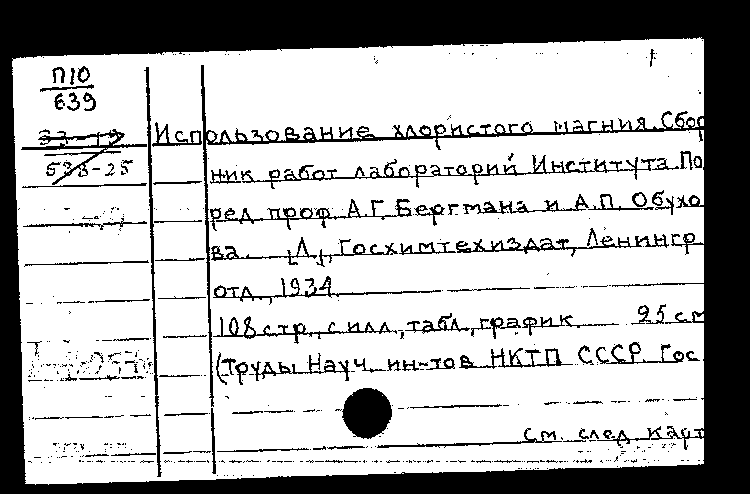 П10
639
33-19
533-25
Использование хлористого магния. Сбор
ник работ лабораторий Института. По
ред. проф. А.Г. Бергмана и А.П. Обухо
ва. [Л.], Госхимтехиздат, Ленингр
отд., 1934.
108 стр., с илл., табл., график. 25 см
(Труды Науч. ин-тов НКТП СССР. Гос
см. след. карт